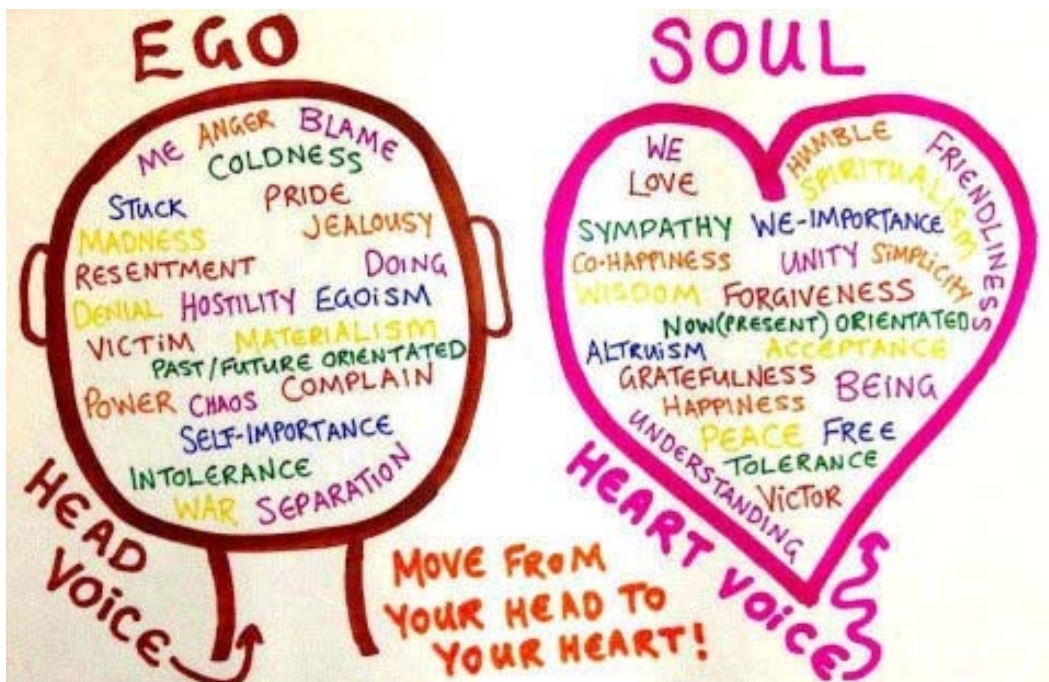 EGO
ME ANGER BLAME
COLDNESS
STUCK PRIDE
MADNESS JEALOUSY
RESENTMENT DOING
DENIAL HOSTILITY EGOiSM
VICTiM MATERIALISM
PAST/FUTURE ORIENTATED
POWER CHAOS COMPLAIN
SELF-IMPORTANCE
INTOLERANCE
WAR SEPARATION
HEAD
VOiCE
MOVE FROM
YOUR HEAD TO
YOUR HEART!
SOUL
WE HUMBLE FRIENDLINESS
LOVE SPIRITUALISM
SYMPATHY WE-IMPORTANCE
CO-HAPPINESS UNITY SiMPLICITY
WISDOM FORGIVENESS
NOW(PRESENT) ORIENTATED
ALTRUiSM ACCEPTANCE
GRATEFULNESS BEING
HAPPINESS
PEACE FREE
UNDERSTANDING TOLERANCE
VICTOR
HEART VOiCE